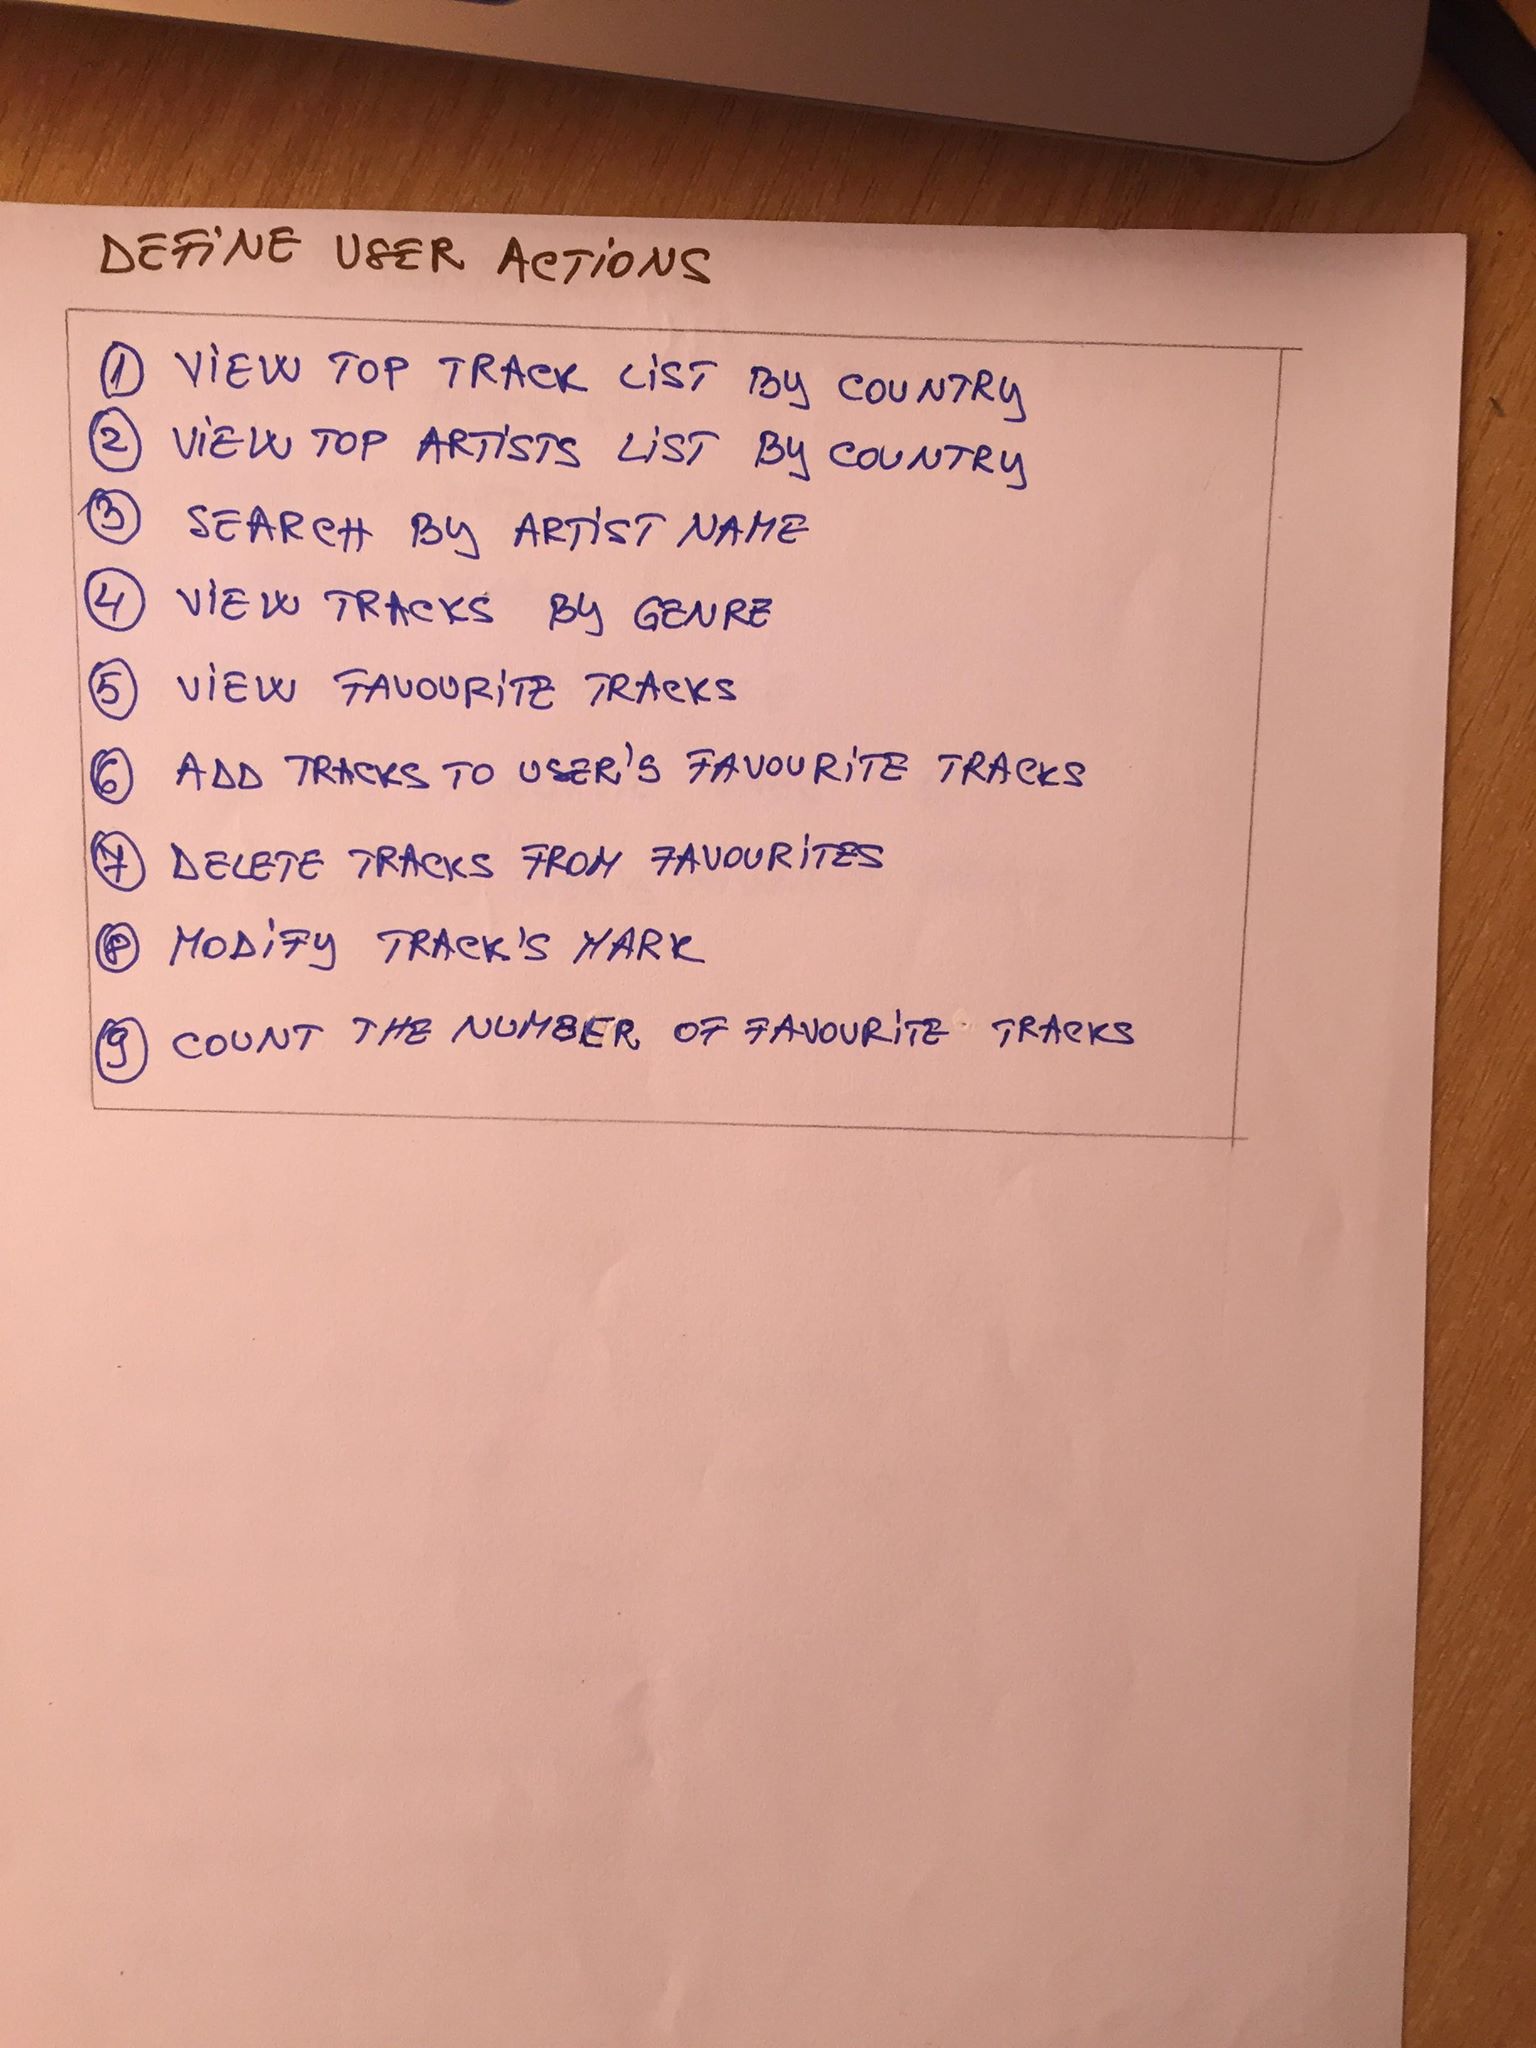 DEFINE USER ACTIONS
1 VIEW TOP TRACK LIST BY COUNTRY
2 VIEW TOP ARTISTS LIST BY COUNTRY
3 SEARCH BY ARTIST NAME
4 VIEW TRACKS BY GENRE
5 VIEW FAVOURITE TRACKS
6 ADD TRACKS TO USER'S FAVOURITE TRACKS
7 DELETE TRACKS FROM FAVOURITES
8 MODIFY TRACK'S MARK
9 COUNT THE NUMBER OF FAVOURITE TRACKS